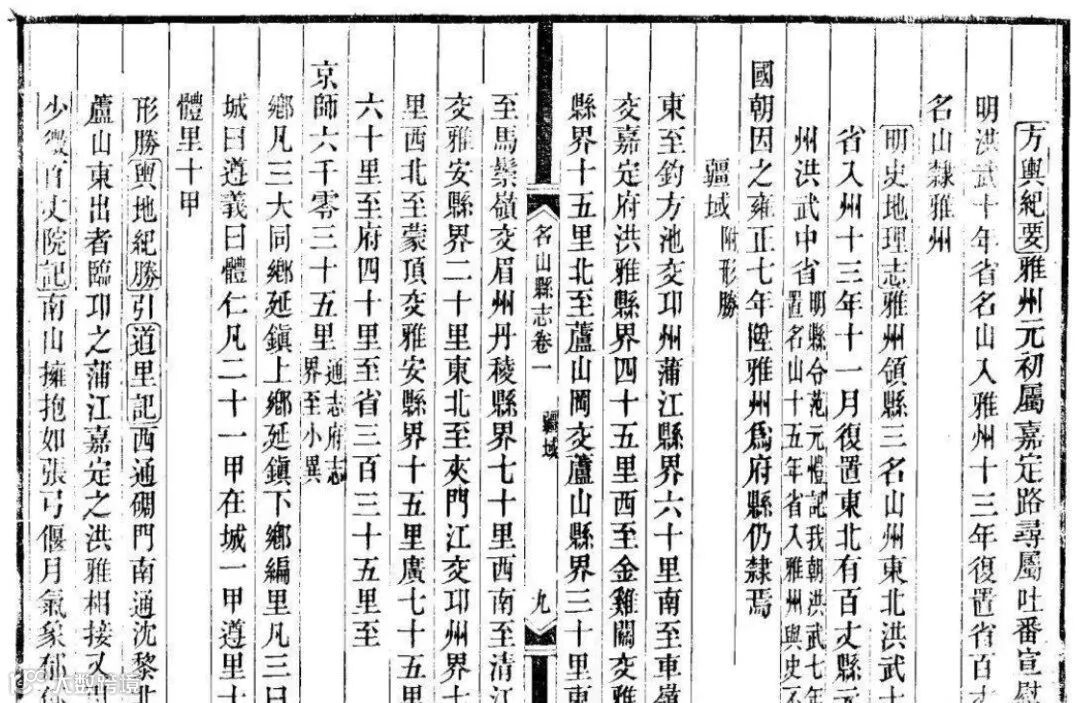 方輿紀要雅州元初屬嘉定路尋屬吐番宣慰
明洪武十年省名山入雅州十三年復置省百
名山隸雅州
明史地理志雅州領縣三名山州東北洪武十
省入州十三年十一月復置東北有百丈縣元
州洪武中省
明縣令范元愷記我朝洪武七年
置名山十五年省入雅州與史不
國朝因之雍正七年陞雅州爲府縣仍隸焉
疆域附形勝
東至釣方池交邛州蒲江縣界六十里南至車嶺
交嘉定府洪雅縣界四十五里西至金雞關交雅
縣界十五里北至蘆山岡交蘆山縣界三十里東
名山縣志卷一
疆域
九
至馬鬃嶺交眉州丹稜縣界七十里西南至清江
交雅安縣界二十里東北至夾門江交邛州界七
里西北至蒙頂交雅安縣界十五里廣七十五里
六十里至府四十里至省三百三十五里至
京師六千零三十五里
通志府志
界至小異
鄉凡三大同鄉延鎮上鄉延鎮下鄉編里凡三曰
城曰遵義曰體仁凡二十一甲在城一甲遵里十
體里十甲
形勝輿地紀勝引道里記西通碉門南通沈黎北
蘆山東出者臨邛之蒲江嘉定之洪雅相接又
少微百丈院記南山擁抱如張弓偃月氣象郁
大数跨境